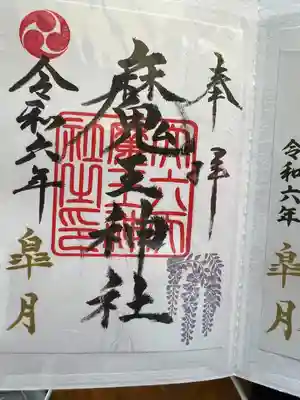 奉拝
魔王神社
令和六年
皐月
令和六年
皐月